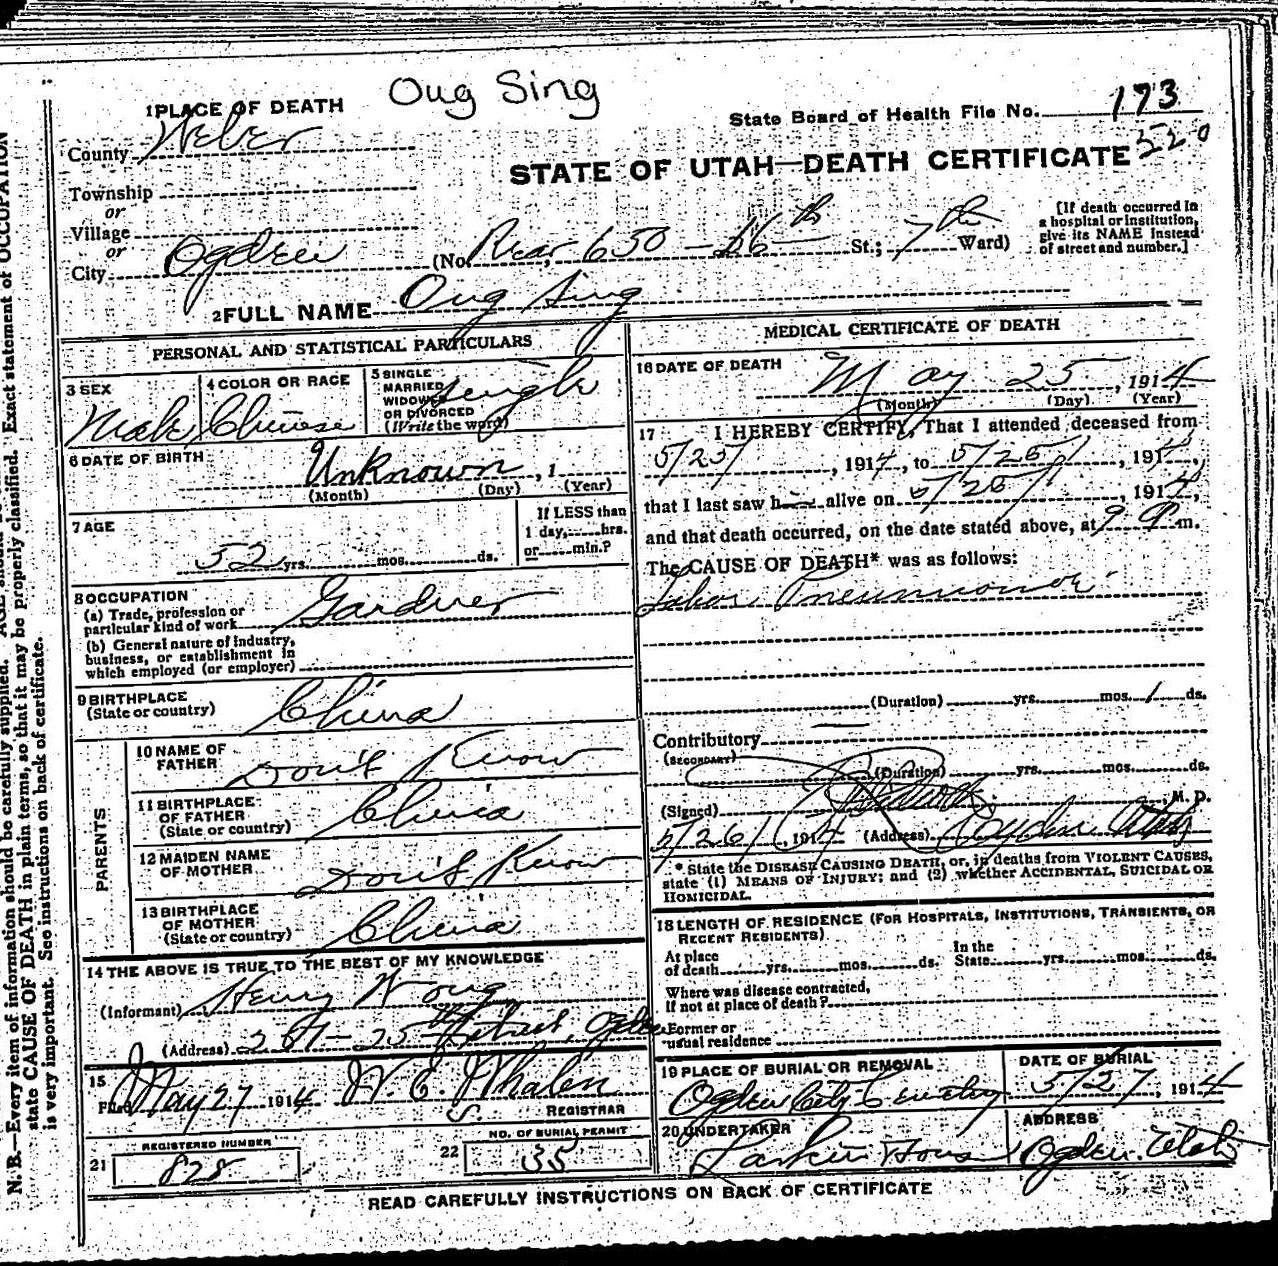 Oug Sing
1 PLACE OF DEATH
State Board of Health File No. 173
County Weber
520
STATE OF UTAH—DEATH CERTIFICATE
Township
or
Village
or
City Ogden (No. Rear 650 — 26th St.; 7th Ward)
[If death occurred in
a hospital or institution,
give its NAME instead
of street and number.]
2 FULL NAME Oug Sing
PERSONAL AND STATISTICAL PARTICULARS
3 SEX
Male
4 COLOR OR RACE
Chinese
5 SINGLE
MARRIED
WIDOWED
OR DIVORCED
(Write the word)
Single
6 DATE OF BIRTH
Unknown, 1
(Month) (Day) (Year)
7 AGE
52 yrs. mos. ds.
If LESS than
1 day, hrs.
or min.?
8 OCCUPATION
(a) Trade, profession or
particular kind of work Gardner
(b) General nature of industry,
business, or establishment in
which employed (or employer)
9 BIRTHPLACE
(State or country) China
PARENTS
10 NAME OF
FATHER Don't Know
11 BIRTHPLACE
OF FATHER
(State or country) China
12 MAIDEN NAME
OF MOTHER Don't Know
13 BIRTHPLACE
OF MOTHER
(State or country) China
14 THE ABOVE IS TRUE TO THE BEST OF MY KNOWLEDGE
(Informant) Henry Wong
(Address) 25th Street, Ogden
15
Filed May 27 1914 W. E. Whalen
REGISTRAR
21 REGISTERED NUMBER
828
22 NO. OF BURIAL PERMIT
35
MEDICAL CERTIFICATE OF DEATH
16 DATE OF DEATH
May 25, 1914
(Month) (Day) (Year)
17 I HEREBY CERTIFY, That I attended deceased from
5/25, 1914, to 5/25, 1914,
that I last saw h alive on 5/25, 1914,
and that death occurred, on the date stated above, at 9 m.
The CAUSE OF DEATH* was as follows:
Lobar Pneumonia
(Duration) yrs. mos. 1 ds.
Contributory —
(SECONDARY)
(Duration) yrs. mos. ds.
(Signed) , M. D.
5/26, 1914 (Address) Ogden Utah
* State the DISEASE CAUSING DEATH, or, in deaths from VIOLENT CAUSES,
state (1) MEANS OF INJURY; and (2) whether ACCIDENTAL, SUICIDAL OR
HOMICIDAL.
18 LENGTH OF RESIDENCE (FOR HOSPITALS, INSTITUTIONS, TRANSIENTS, OR
RECENT RESIDENTS)
At place
of death yrs. mos. ds.
In the
State yrs. mos. ds.
Where was disease contracted,
if not at place of death?
Former or
usual residence
19 PLACE OF BURIAL OR REMOVAL
Ogden City Cemetery
DATE OF BURIAL
5/27, 1914
20 UNDERTAKER
Larkin Hous
ADDRESS
Ogden. Utah
READ CAREFULLY INSTRUCTIONS ON BACK OF CERTIFICATE
N. B.—Every item of information should be carefully supplied. AGE should
state CAUSE OF DEATH in plain terms, so that it may be properly classified. Exact statement of OCCUPATION
is very important. See instructions on back of certificate.